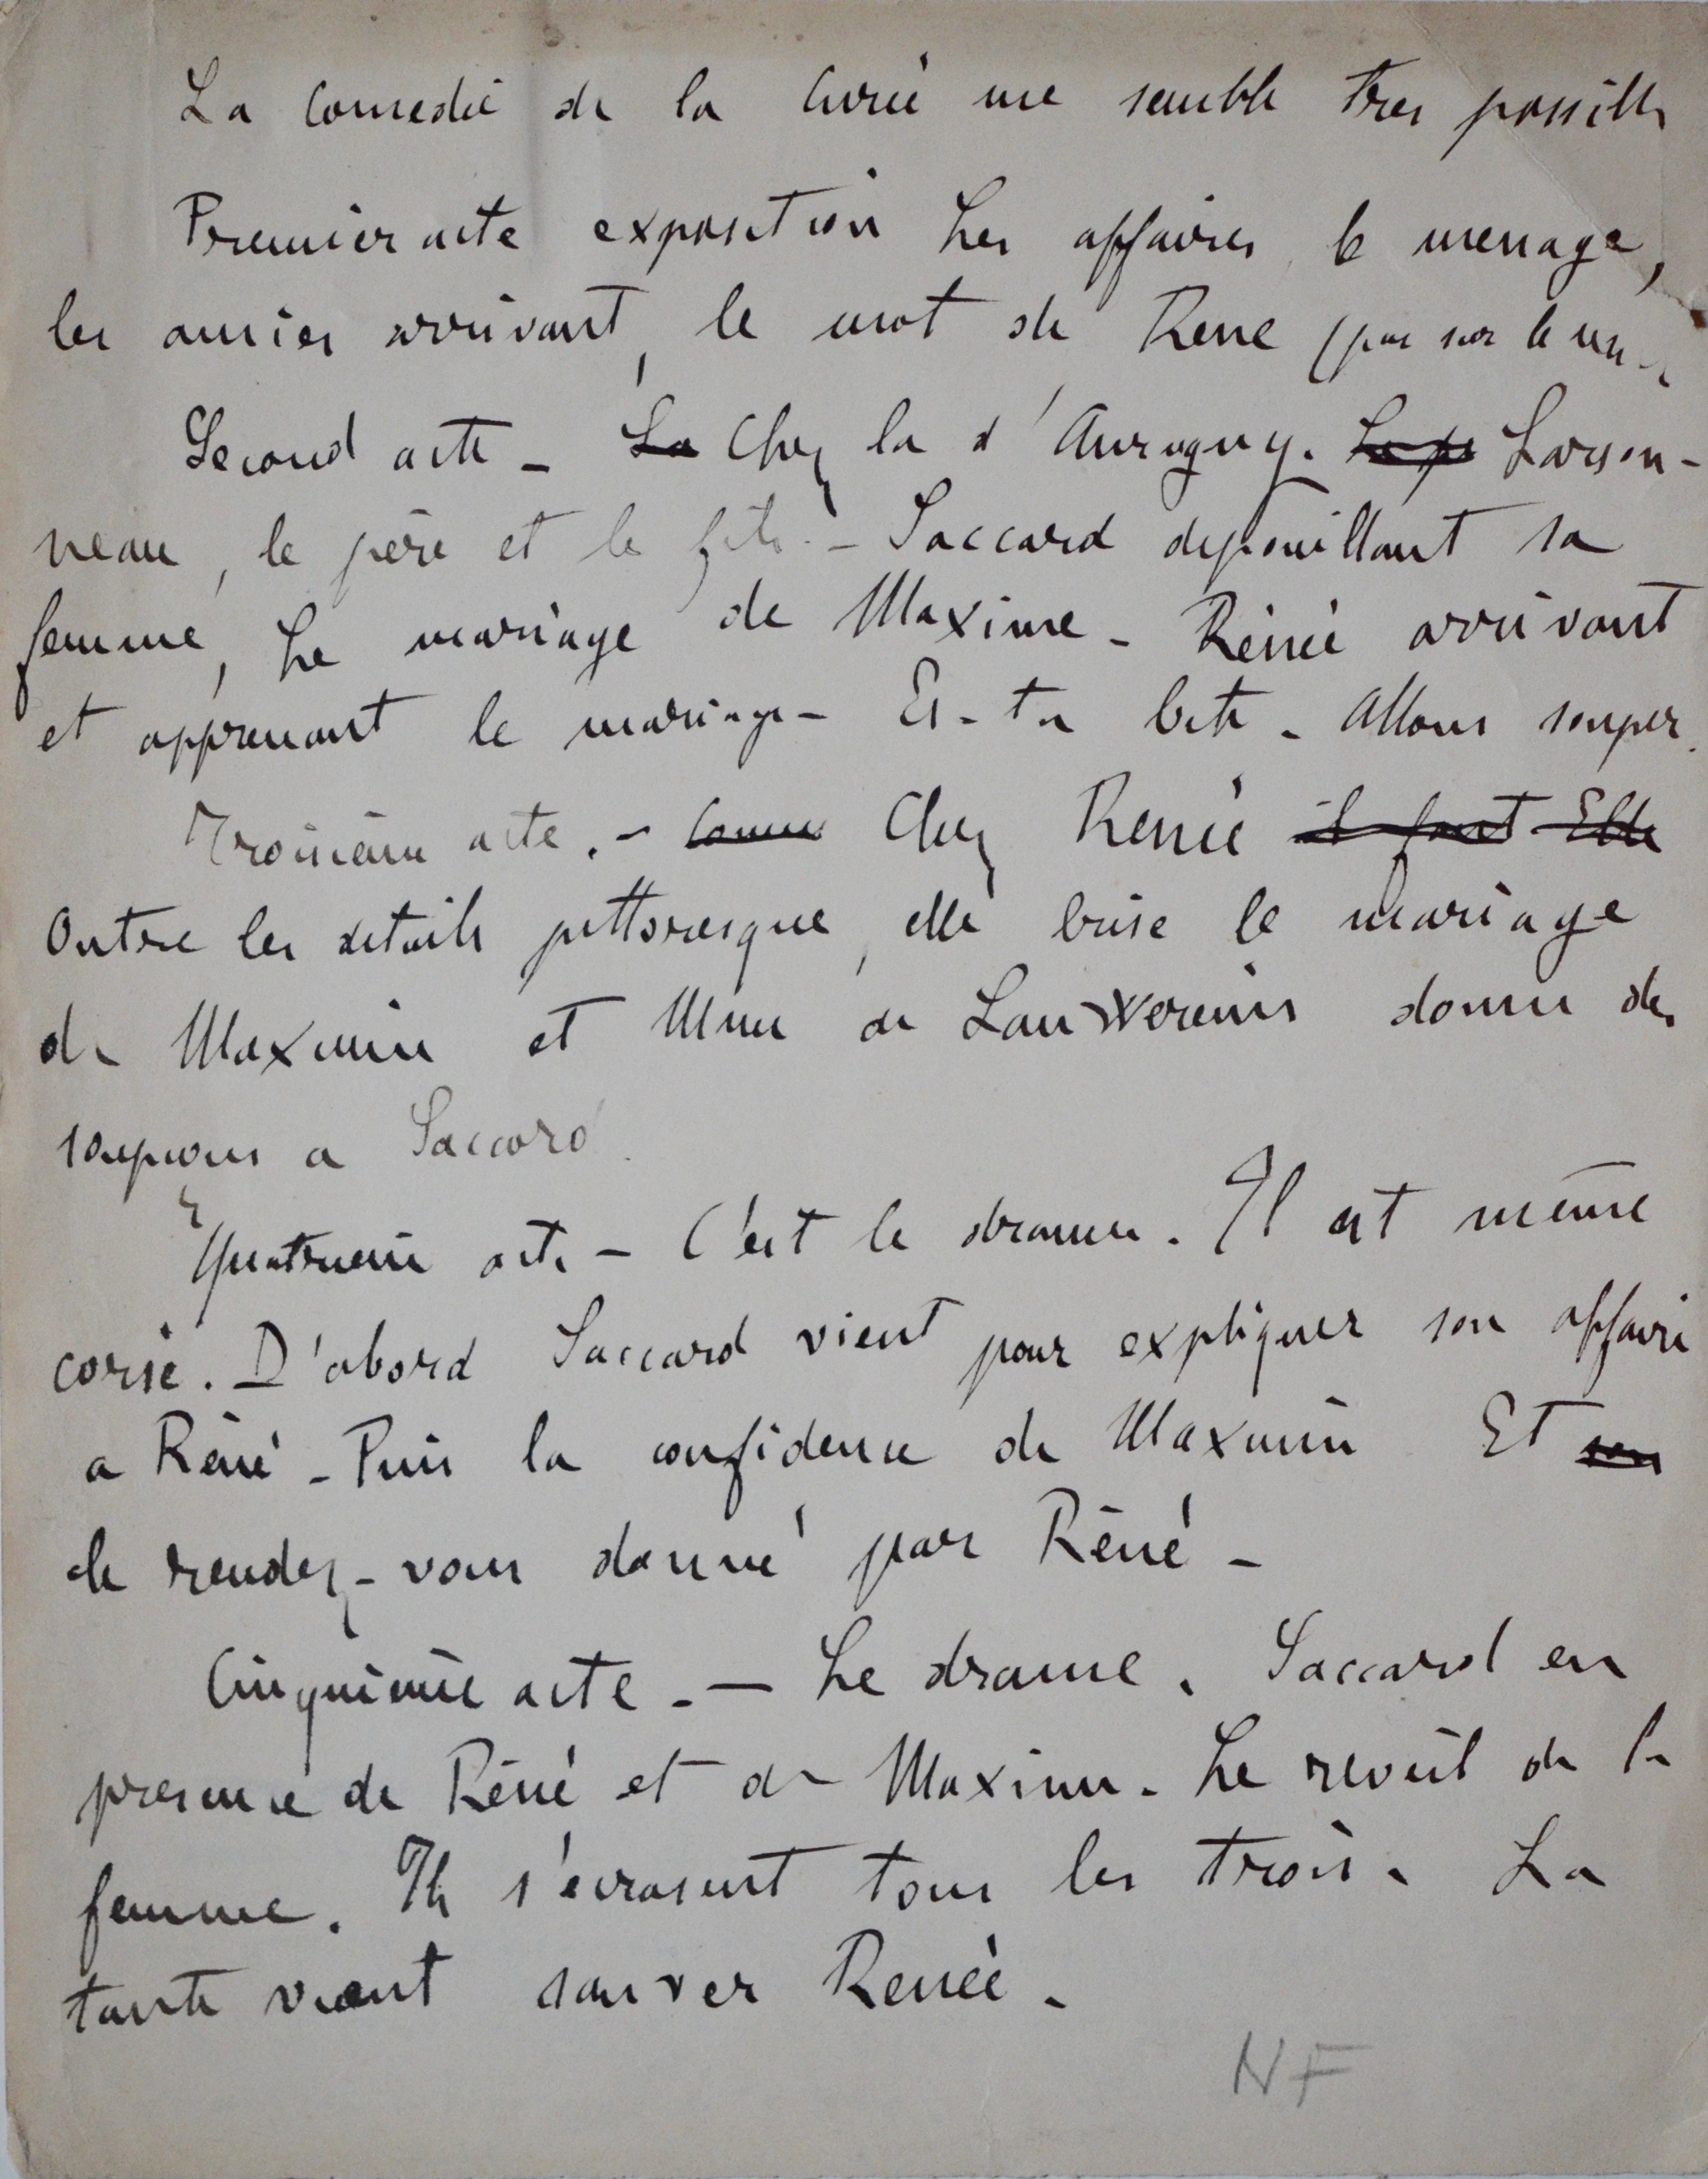 La Comedie de la Curée me semble tres possible
Premier acte exposition Les affaires le menage,
les amies arrivant, le mot de Rene (pas sur le
Second acte - La Chez la d'Aurigny. Larson-
neau, le père et le fils. - Saccard depouillant sa
femme, Le mariage de Maxime - Rénée arrivant
et apprenant le mariage - Es-tu bete - Allons souper.
Troisième acte. - Comme Chez Renée il faut Elle
Outre les details pittoresque, elle brise le mariage
de Maxime et Mme de Lauwerens donne des
soupçons a Saccard.
Quatrieme acte - C'est le drame. Il est même
corsé. D'abord Saccard vient pour expliquer son affaire
a Réné - Puis la confidence de Maxime Et son
le rendez-vous donné par Réné -
Cinquième acte. - Le drame. Saccard en
presence de Réné et de Maxime. Le reveil de la
femme. Ils s'écrasent tous les trois. La
tante vient sauver Renée.
NF